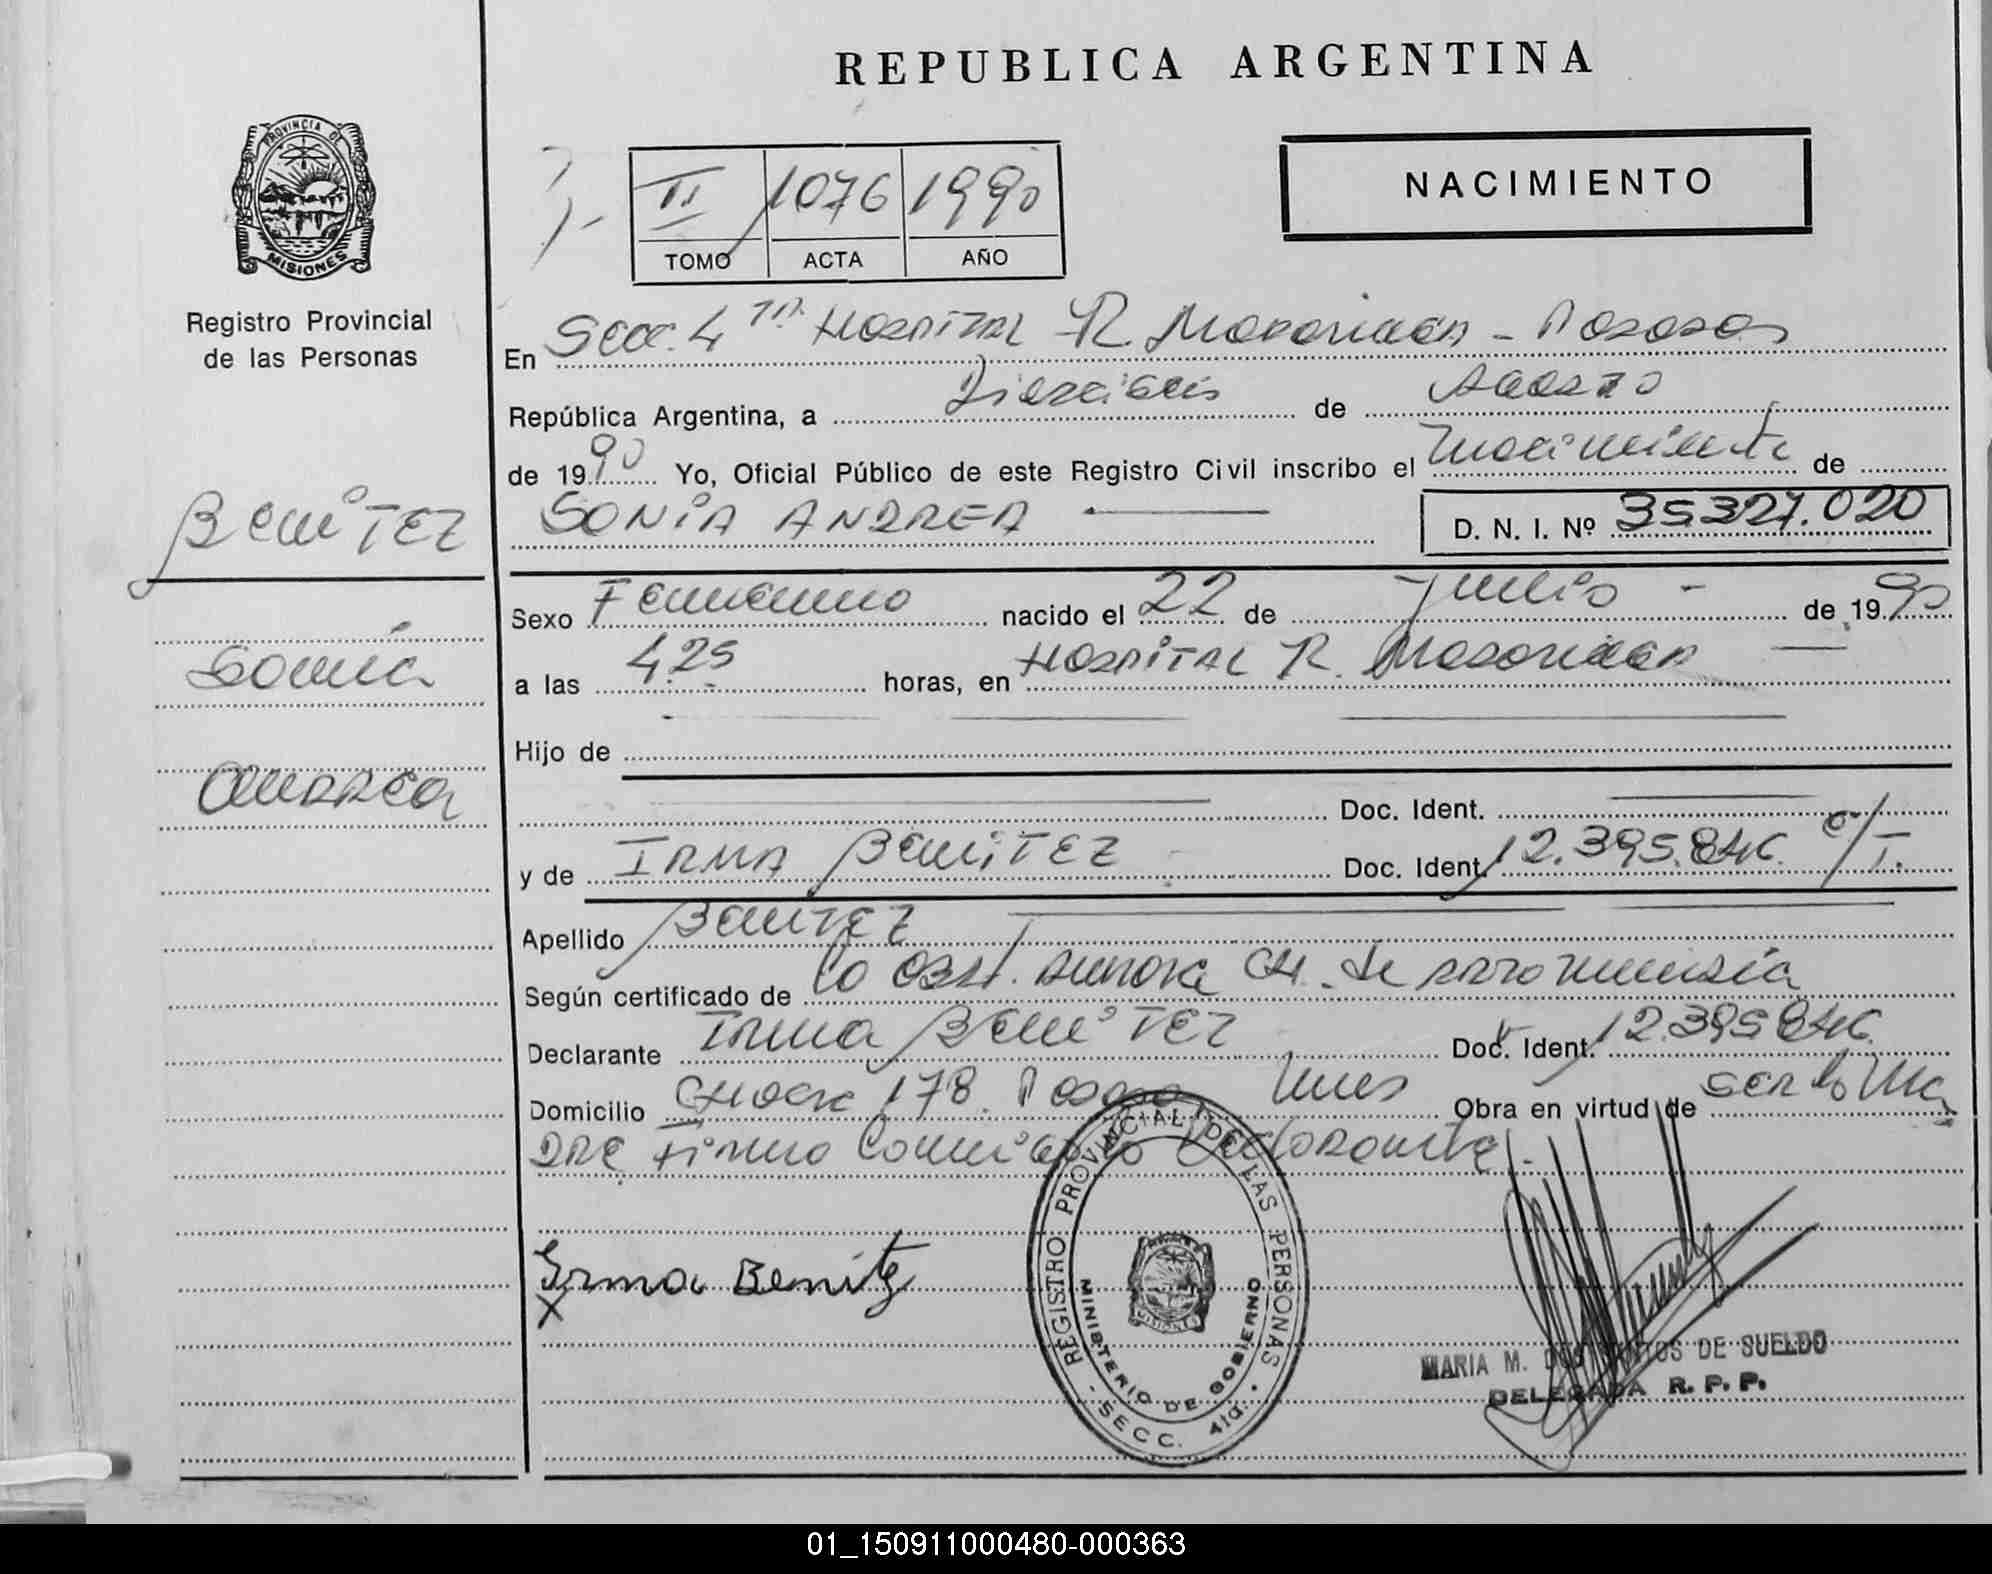 REPUBLICA ARGENTINA
PROVINCIA DE
MISIONES
Registro Provincial
de las Personas
II 1076 1990
TOMO ACTA AÑO
NACIMIENTO
En Secc. 4ta Hospital R. Madariaga - Posadas
República Argentina, a Dieciseis de Agosto
de 1990 Yo, Oficial Público de este Registro Civil inscribo el nacimiento de
SONIA ANDREA D. N. I. Nº 35.327.020
BENITEZ
Sonia
Andrea
Sexo Femenino nacido el 22 de Julio - de 1990
a las 4,25 horas, en Hospital R. Madariaga
Hijo de
Doc. Ident.
y de IRMA BENITEZ Doc. Ident. 12.395.846 C/I.
Apellido BENITEZ
Según certificado de la Obst. CH. de
Declarante Irma BENITEZ Doc. Ident. 12.395.846
Domicilio 178. Posadas Mnes Obra en virtud de ser la Ma
dre Firma la Declarante.
Irma Benitez
X
REGISTRO PROVINCIAL DE LAS PERSONAS
MINISTERIO DE GOBIERNO
MISIONES
- SECC. 4ta. -
MARIA M. DOS SANTOS DE SUELDO
DELEGADA R. P. P.
01_150911000480-000363